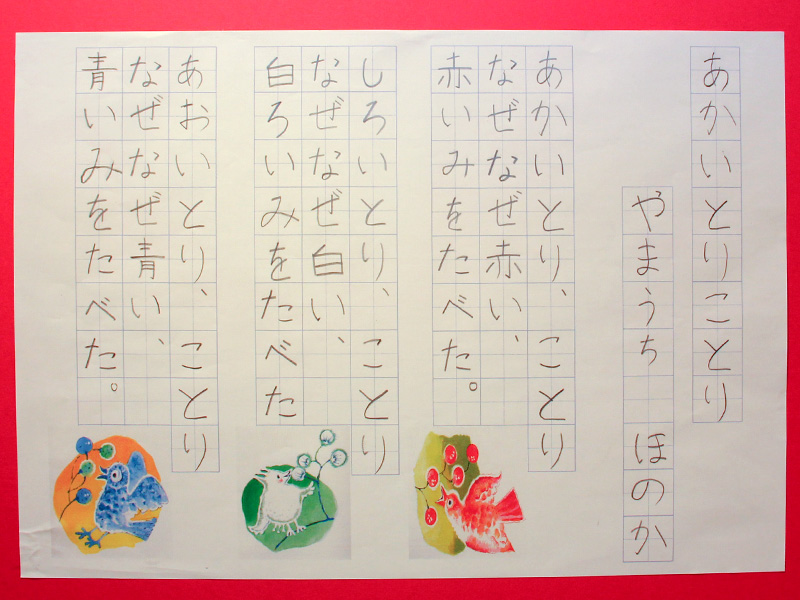 あかいとりことり
やまうち ほのか
あかいとり、ことり
なぜなぜ赤い、
赤いみをたべた。
しろいとり、ことり
なぜなぜ白い、
白ろいみをたべた
あおいとり、ことり
なぜなぜ青い、
青いみをたべた。